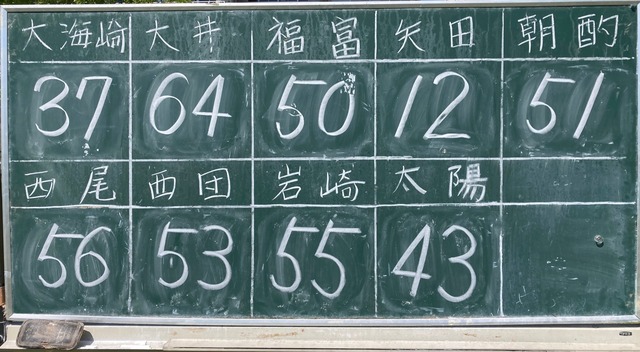 大海崎 大井 福富 矢田 朝酌
37 64 50 12 51
西尾 西団 岩崎 太陽
56 53 55 43